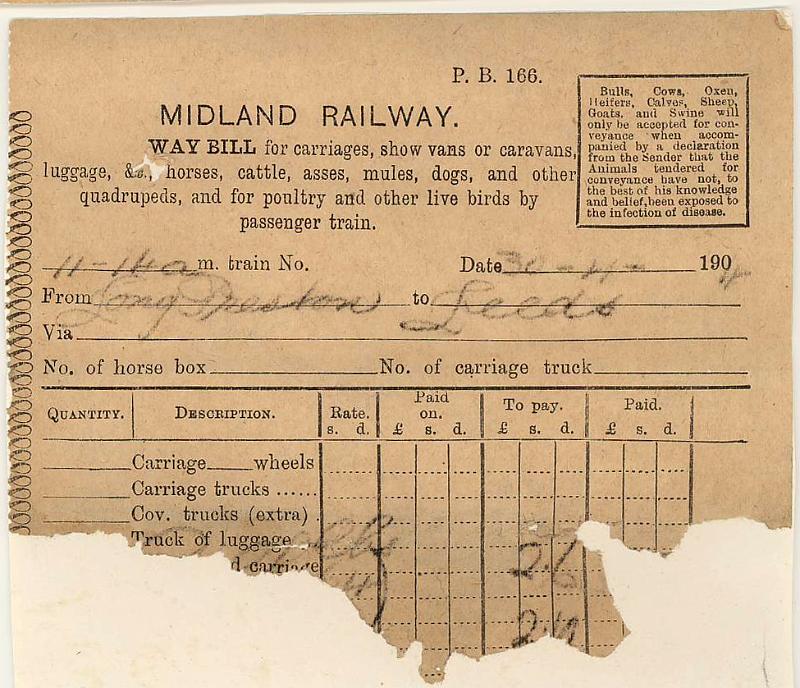 P. B. 166.
MIDLAND RAILWAY.
WAY BILL for carriages, show vans or caravans,
luggage, &c., horses, cattle, asses, mules, dogs, and other
quadrupeds, and for poultry and other live birds by
passenger train.
Bulls, Cows, Oxen,
Heifers, Calves, Sheep,
Goats, and Swine will
only be accepted for con-
veyance when accom-
panied by a declaration
from the Sender that the
Animals tendered for
conveyance have not, to
the best of his knowledge
and belief, been exposed to
the infection of disease.
11-14 a m. train No. Date 30-4- 1904
From Long Preston to Leeds
Via
No. of horse box No. of carriage truck
QUANTITY. DESCRIPTION. Rate. Paid on. To pay. Paid.
s. d. £ s. d. £ s. d. £ s. d.
Carriage wheels
Carriage trucks ......
Cov. trucks (extra) .
Truck of luggage
d carriage